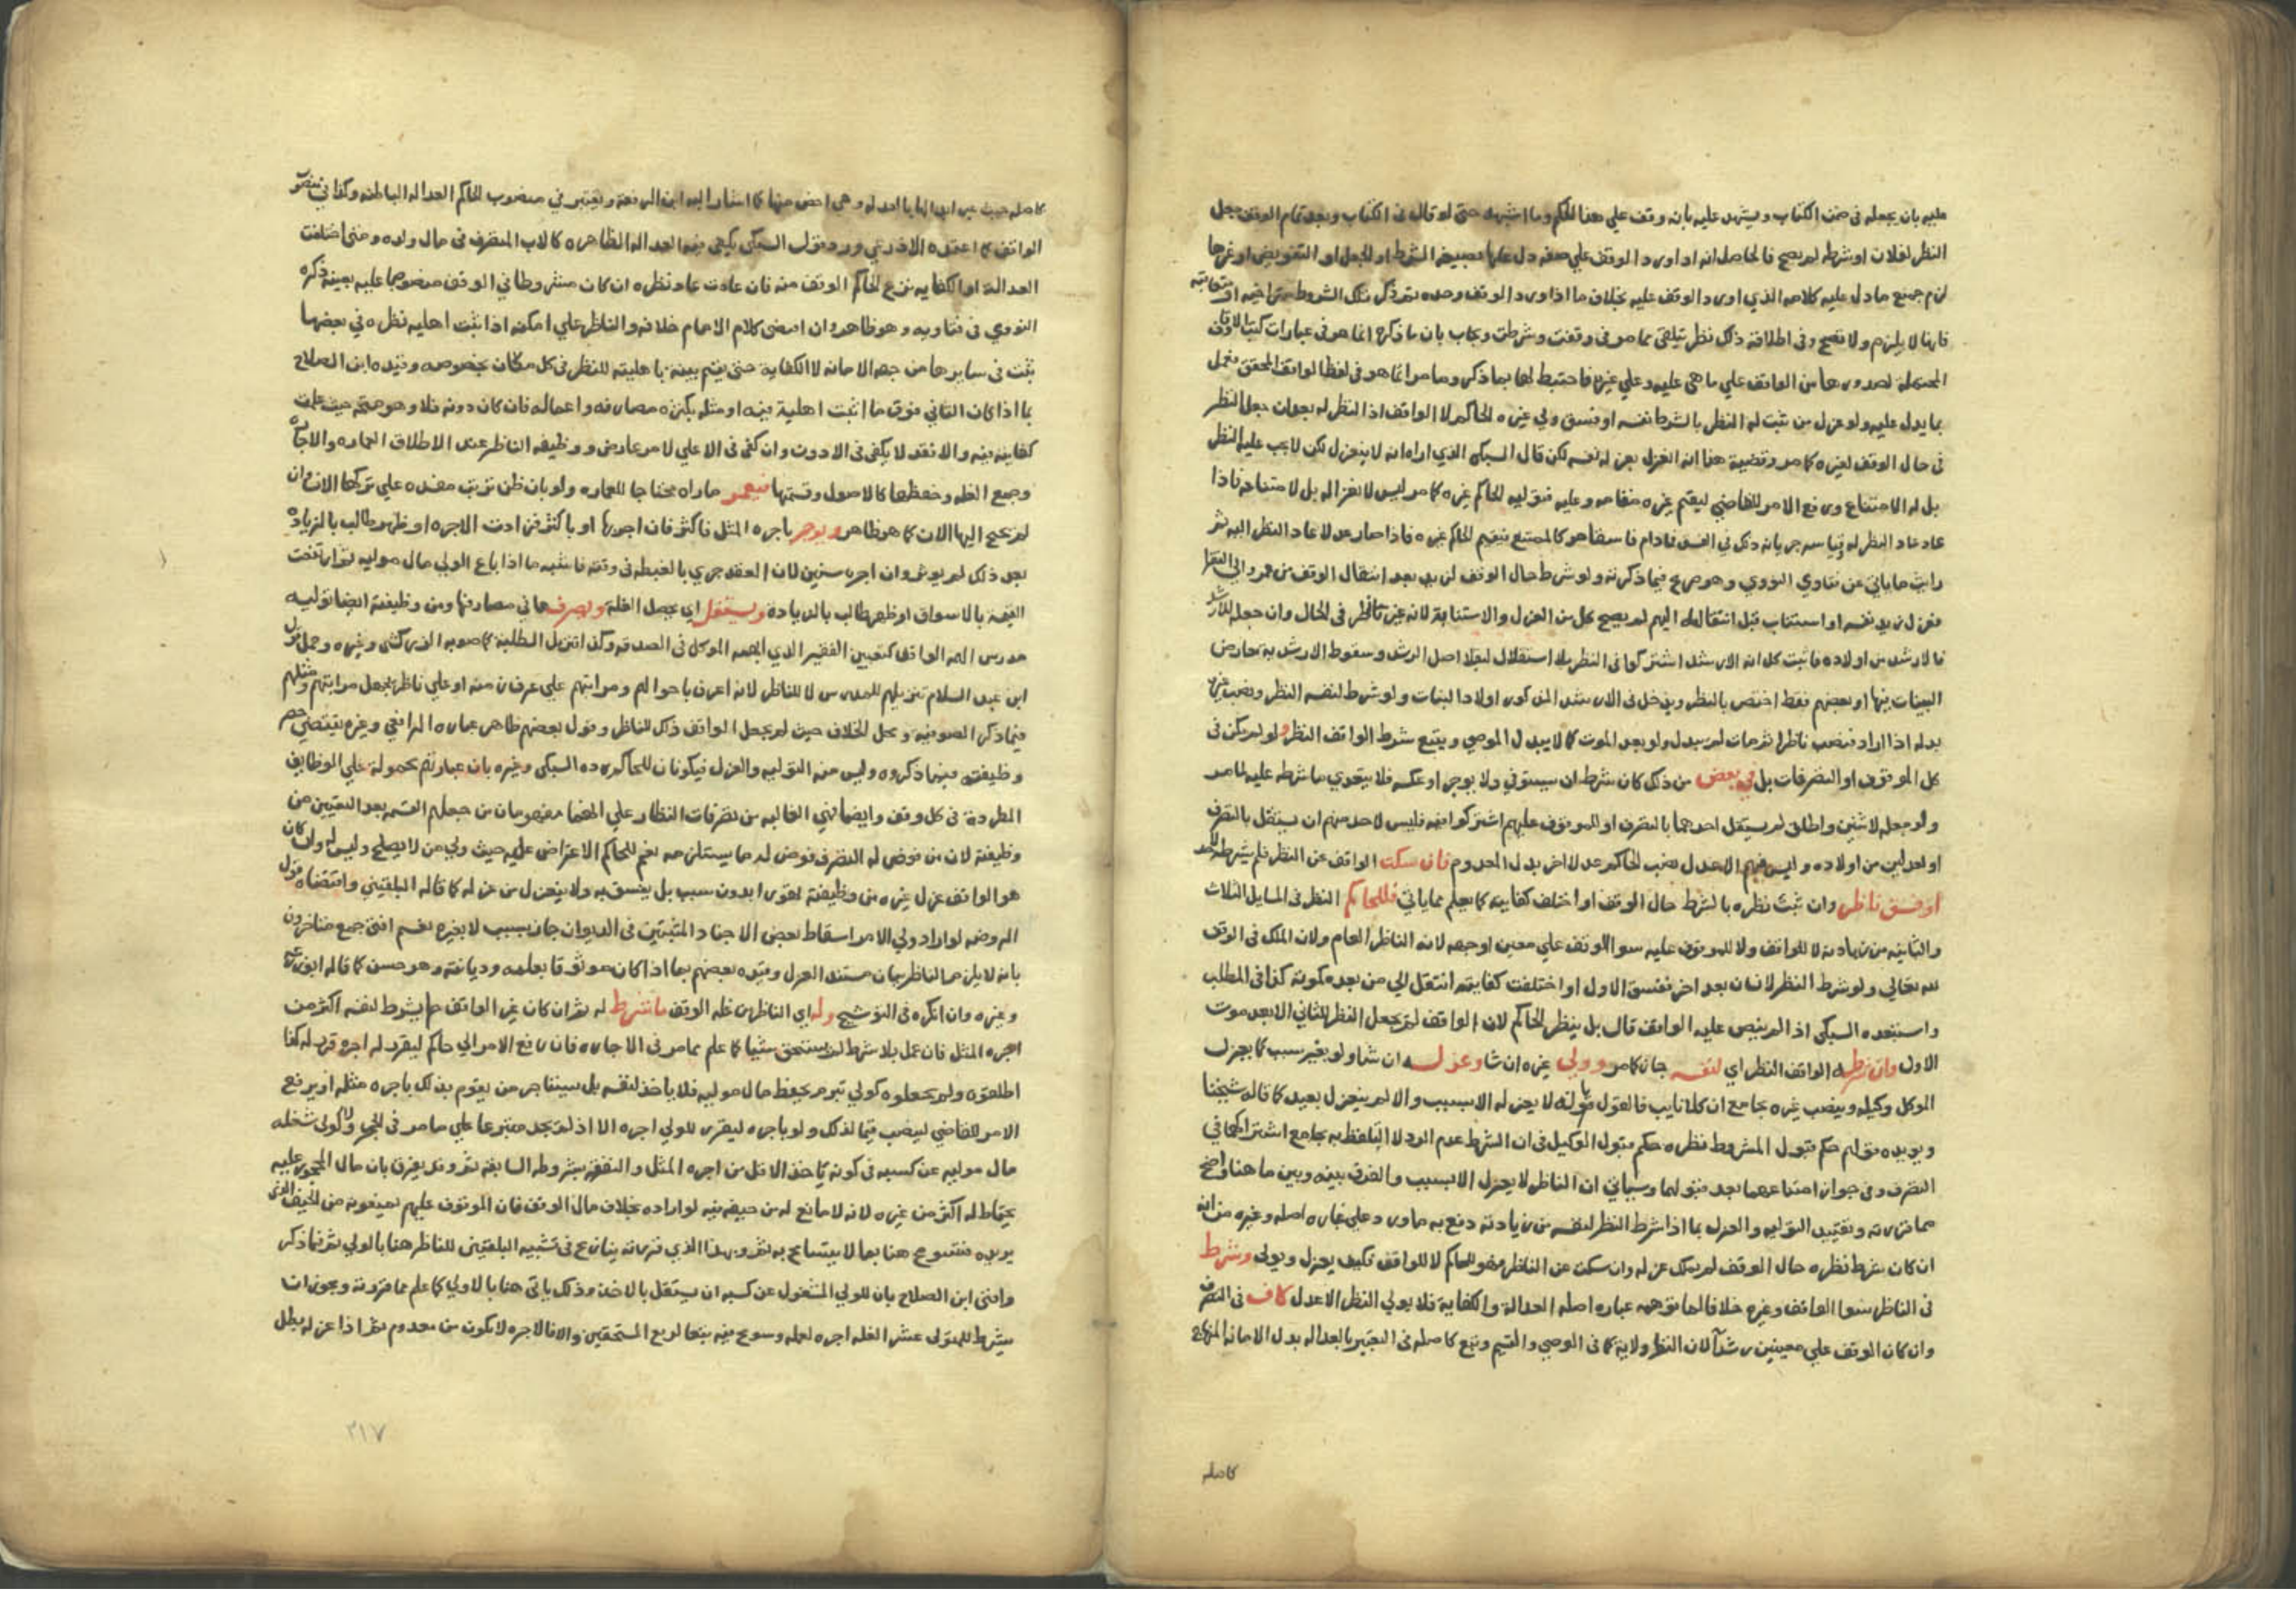 عليه بان يجعله فى ضمن الكتاب ويشهد عليه بانه وقف علي هذا الحكم وما اشبهه حتى لو قال فى الكتاب وبعد تمام الوقف جعل
النظر لفلان او شرطه لم يصح فالحاصل انه اذا ورد الوقف علي صفة دل عليها بصيغة الشرط او الجعل او التفويض او غيرها
لزم جميع ما دل عليه كلامه الذي اورد الوقف عليه بخلاف ما اذا ورد الوقف وحده ثم ذكر تلك الشروط متراخية او متعاقبة
فانها لا يلزم ولا تصح وفى اطلاقه ذلك نظر يتلقى مما مر فى وقفت وشرطت ويجاب بان ما ذكره انما هو فى عبارات كتب الاوقاف
المحتملة لصدورها من الواقف علي ما هي عليه وعلي غيره فاحتيط لها بما ذكر وما مر انما هو فى لفظ الواقف المحقق فعمل
بما يدل عليه ولو عزل من ثبت له النظر بالشرط نفسه او فسق ولي غيره الحاكم لا الواقف اذ لا نظر له بعد ان جعل النظر
فى حال الوقف لغيره كما مر وقضية هذا انه انعزل بعزله نفسه لكن قال السبكى الذي اراه انه لا ينعزل لكن لا يجب عليه النظر
بل له الامتناع ورفع الامر للقاضي ليقيم غيره مقامه وعليه فتولية الحاكم غيره كما مر ليس لانعزاله بل لامتناعه فاذا
عاد عاد النظر له وقياسه جريانه ذلك في الفسق فمادام فاسقا هو كالممتنع فيقيم الحاكم غيره فاذا صار عدلا عاد النظر اليه ثم
رايت ما ياتي عن فتاوي النووي وهو صريح فيما ذكرته ولو شرط حال الوقف لزيد بعد انتقال الوقف من عمرو الى الفقرا
فعزل زيد نفسه او استناب قبل انتقاله اليهم لم يصح كل من العزل والاستنابة لانه غير ناظر فى الحال وان جعل للارشد
فالارشد من اولاده فاثبت كل انه الارشد اشتركوا فى النظر بلا استقلال لبقا اصل الرشد وسقوط الارشدية بتعارض
البينات فيها او بعضهم فقط اختص بالنظر ويدخل فى الارشد المذكور اولاد البنات ولو شرط لنفسه النظر ونصب غيره
بدله اذا اراد فنصب ناظرا ثم مات لم يبدل ولو بعد الموت كما لا يبدل الموصي ويتبع شرط الواقف النظر ولو لم يكن فى
كل الموقوف او التصرفات بل في بعض من ذلك كان شرط ان يستوفي ولا يوجر او عكسه فلا يتعدي ما شرطه عليه لما مر
ولو جعله لاثنين واطلق لم يستقل احدهما بالتصرف او للموقوف عليهم اشتركوا فيه فليس لاحد منهم ان يستقل بالتصرف
او لعدلين من اولاده وليس فيهم الا عدل نصب الحاكم عدلا اخر بدل المعدوم فان سكت الواقف عن النظر فلم يشرطه لاحد
او فسق ناظر وان ثبت نظره بالشرط حال الوقف او اختلف كفايته كما يعلم مما ياتي فللحاكم النظر فى المسايل الثلاث
والثانية من زيادته لا للواقف ولا للموقوف عليه سوا الوقف علي معين او جهة لانه الناظر العام ولان الملك فى الوقف
لله تعالي ولو شرط النظر لانسان بعد اخر ففسق الاول او اختلفت كفايته انتقل الي من بعده كموته كذا فى المطلب
واستبعده السبكي اذا لم ينص عليه الواقف قال بل ينظر الحاكم لان الواقف لم يجعل النظر للثاني الا بعد موت
الاول وان شرط له الواقف النظر اي لنفسه جاز كما مر وولي غيره ان شا وعزله ان شا ولو بغير سبب كما يعزل
الموكل وكيله وينصب غيره بجامع ان كلا نايب فالقول بانه لا يعزله الا بسبب والا لم ينعزل بعيد كما قاله شيخنا
ويويده قولهم حكم قبول المشروط نظره حكم قبول الوكيل فى ان الشرط عدم الرد لا التلفظ به بجامع اشتراكهما في
التصرف وفى جواز امتناعهما بعد قبولهما وسياتي ان الناظر لا يعزل الا بسبب والفرق بينه وبين ما هنا واضح
مما قررته وتقييد التولية والعزل بما اذا شرط النظر لنفسه من زيادته دفع به ما ورد علي عبارة اصله وغيره من انه
ان كان شرط نظره حال الوقف لم يملك عزله وان سكت عن الناظر فهو للحاكم لا للواقف فكيف يعزل ويولي وشرط
فى الناظر سوا الواقف وغيره خلافا لما توهمه عبارة اصله العدالة والكفاية فلا يولي النظر الا عدل كاف فى التصرف
وان كان الوقف علي معينين رشدا لان النظر ولاية كما فى الوصي والقيم وتبع كاصله فى التعبير بالعدالة بدل الامانة المنهاج
كاصله
كاصله حيث عبر ابدالها بالعدالة وهي اخص منها كما اشار اليه ابن الرفعة ويعتبر في منصوب الحاكم العدالة الباطنة وكذا في منصوب
الواقف كما اعتمده الاذرعي ورد قول السبكى يكفي فيه العدالة الظاهرة كالاب المتصرف فى مال ولده ومتى اختلت
العدالة او الكفاية نزع الحاكم الوقف منه فان عادت عاد نظره ان كان مشروطا في الوقف منصوصا عليه بعينه ذكره
النووي فى فتاويه وهو ظاهر وان اقتضى كلام الامام خلافه والناظر علي امكنة اذا ثبت اهلية نظره في بعضها
ثبت فى سايرها من جهة الامانة لا الكفاية حتى يقيم بينة باهليته للنظر فى كل مكان بخصوصه وقيده ابن الصلاح
بما اذا كان الثاني فوق ما اثبت اهلية فيه او مثله بكثرة مصارفه واعماله فان كان دونه فلا وهو متجه حيث علمت
كفايته فيه والا فقد لا يكفى فى الادون وان كفى فى الاعلي لامر عارض ووظيفة الناظر عند الاطلاق العمارة والاجارة
وجمع الغلة وحفظها كالاصول وقسمتها فيعمر ما راه محتاجا للعمارة ولو بان ظن ترتب مفسدة علي تركها الان وان
لم تحتج اليها الان كما هو ظاهر ويوجر باجرة المثل فاكثر فان اجرها او باكثر فزادت الاجرة او ظهر طالب بالزيادة
بعد ذلك لم يوثر وان اجره سنين لان العقد جري بالغبطة فى وقته فاشبه ما اذا باع الولي مال موليه ثم ارتفعت
القيمة بالاسواق او ظهر طالب بالزيادة ويستغل اي يحصل الغلة ويصرفها في مصارفها ومن وظيفته ايضا تولية
مدرس الهمه الواقف كتعيين الفقير الذي ابهمه الموكل فى الصدقة وكذا تنزيل الطلبة كما صوبه الزركشى وغيره وحمل قول
ابن عبد السلام تنزيلهم للمدرس لا للناظر لانه اعرف باحوالهم ومراتبهم علي عرف زمنه او علي ناظر يجهل مراتبهم ومثلهم
فيما ذكر الصوفية ومحل الخلاف حيث لم يجعل الواقف ذلك للناظر وقول بعضهم ظاهر عبارة الرافعي وغيره يقتضي حصر
وظيفته فيما ذكروه وليس منه التولية والعزل فيكونان للحاكم رده السبكى وغيره بان عبارتهم محمولة علي الوظايف
المطردة فى كل وقف وايضا فهي الغالبة من تصرفات النظار علي انهما مفهومان من جعلهم القسمة بعد التعيين من
وظيفته لان من فوض له التصرف فوض له ما يستلزمه نعم للحاكم الاعتراض عليه حيث ولي من لا يصلح وليس له ولو كان
هو الواقف عزل غيره من وظيفته لهوى او بدون سبب بل يفسق به ولا ينعزل من عزله كما قاله البلقيني واقتضاه قول
الروضة لو اراد ولي الامر اسقاط بعض الاجناد المثبتين فى الديوان جاز بسبب لا بغيره نعم افتى جمع متاخرون
بانه لا يلزم الناظر بيان مستند العزل وقيده بعضهم بما اذا كان موثوقا بعلمه وديانته وهو حسن كما قاله ابو زرعة
وغيره وان انكره فى التوشيح وله اي الناظر من غلة الوقف ما شرط له ثم ان كان غير الواقف ما يشرط لنفسه اكثر من
اجرة المثل فان عمل بلا شرط لم يستحق شيئا كما علم مما مر فى الاجارة فان رفع الامر الي حاكم ليقرر له اجرة قرر له كذا
اطلقوه ولم يجعلوه كولي تبرم بحفظ مال موليه فلا ياخذ لنفسه بل يستاجر من يقوم بذلك باجرة مثله او يرفع
الامر للقاضي لينصب قيما لذلك ولو باجرة ليقرر للولي اجرة الا اذا لم يجد متبرعا علي ما مر فى الحجر ولا كولي شغله
مال موليه عن كسبه فى كونه ياخذ الاقل من اجرة المثل والنفقة بشروطه السابقة ثم وقد يفرق بان مال المحجور عليه
يحتاط له اكثر من غيره لانه لا مانع له من حيفه فيه لو اراده بخلاف مال الوقف فان الموقوف عليهم يمنعونه من الحيف الذى
يريده فتسومح هنا بما لا يتسامح به ثم وبهذا الذي قررته ينازع فى تشبيه البلقيني للناظر هنا بالولي ثم فيما ذكر
وافتى ابن الصلاح بان للولي المشغول عن كسبه ان يستقل بالاخذ وذلك ياتى هنا بالاولي كما علم مما قررته ويجوز ان
يشرط للمتولى عشر الغلة اجرة لعمله وسومح فيه تبعا لريع المستحقين والا فالاجرة لا تكون من معدوم ثم اذا عزله بطل
٣١٧